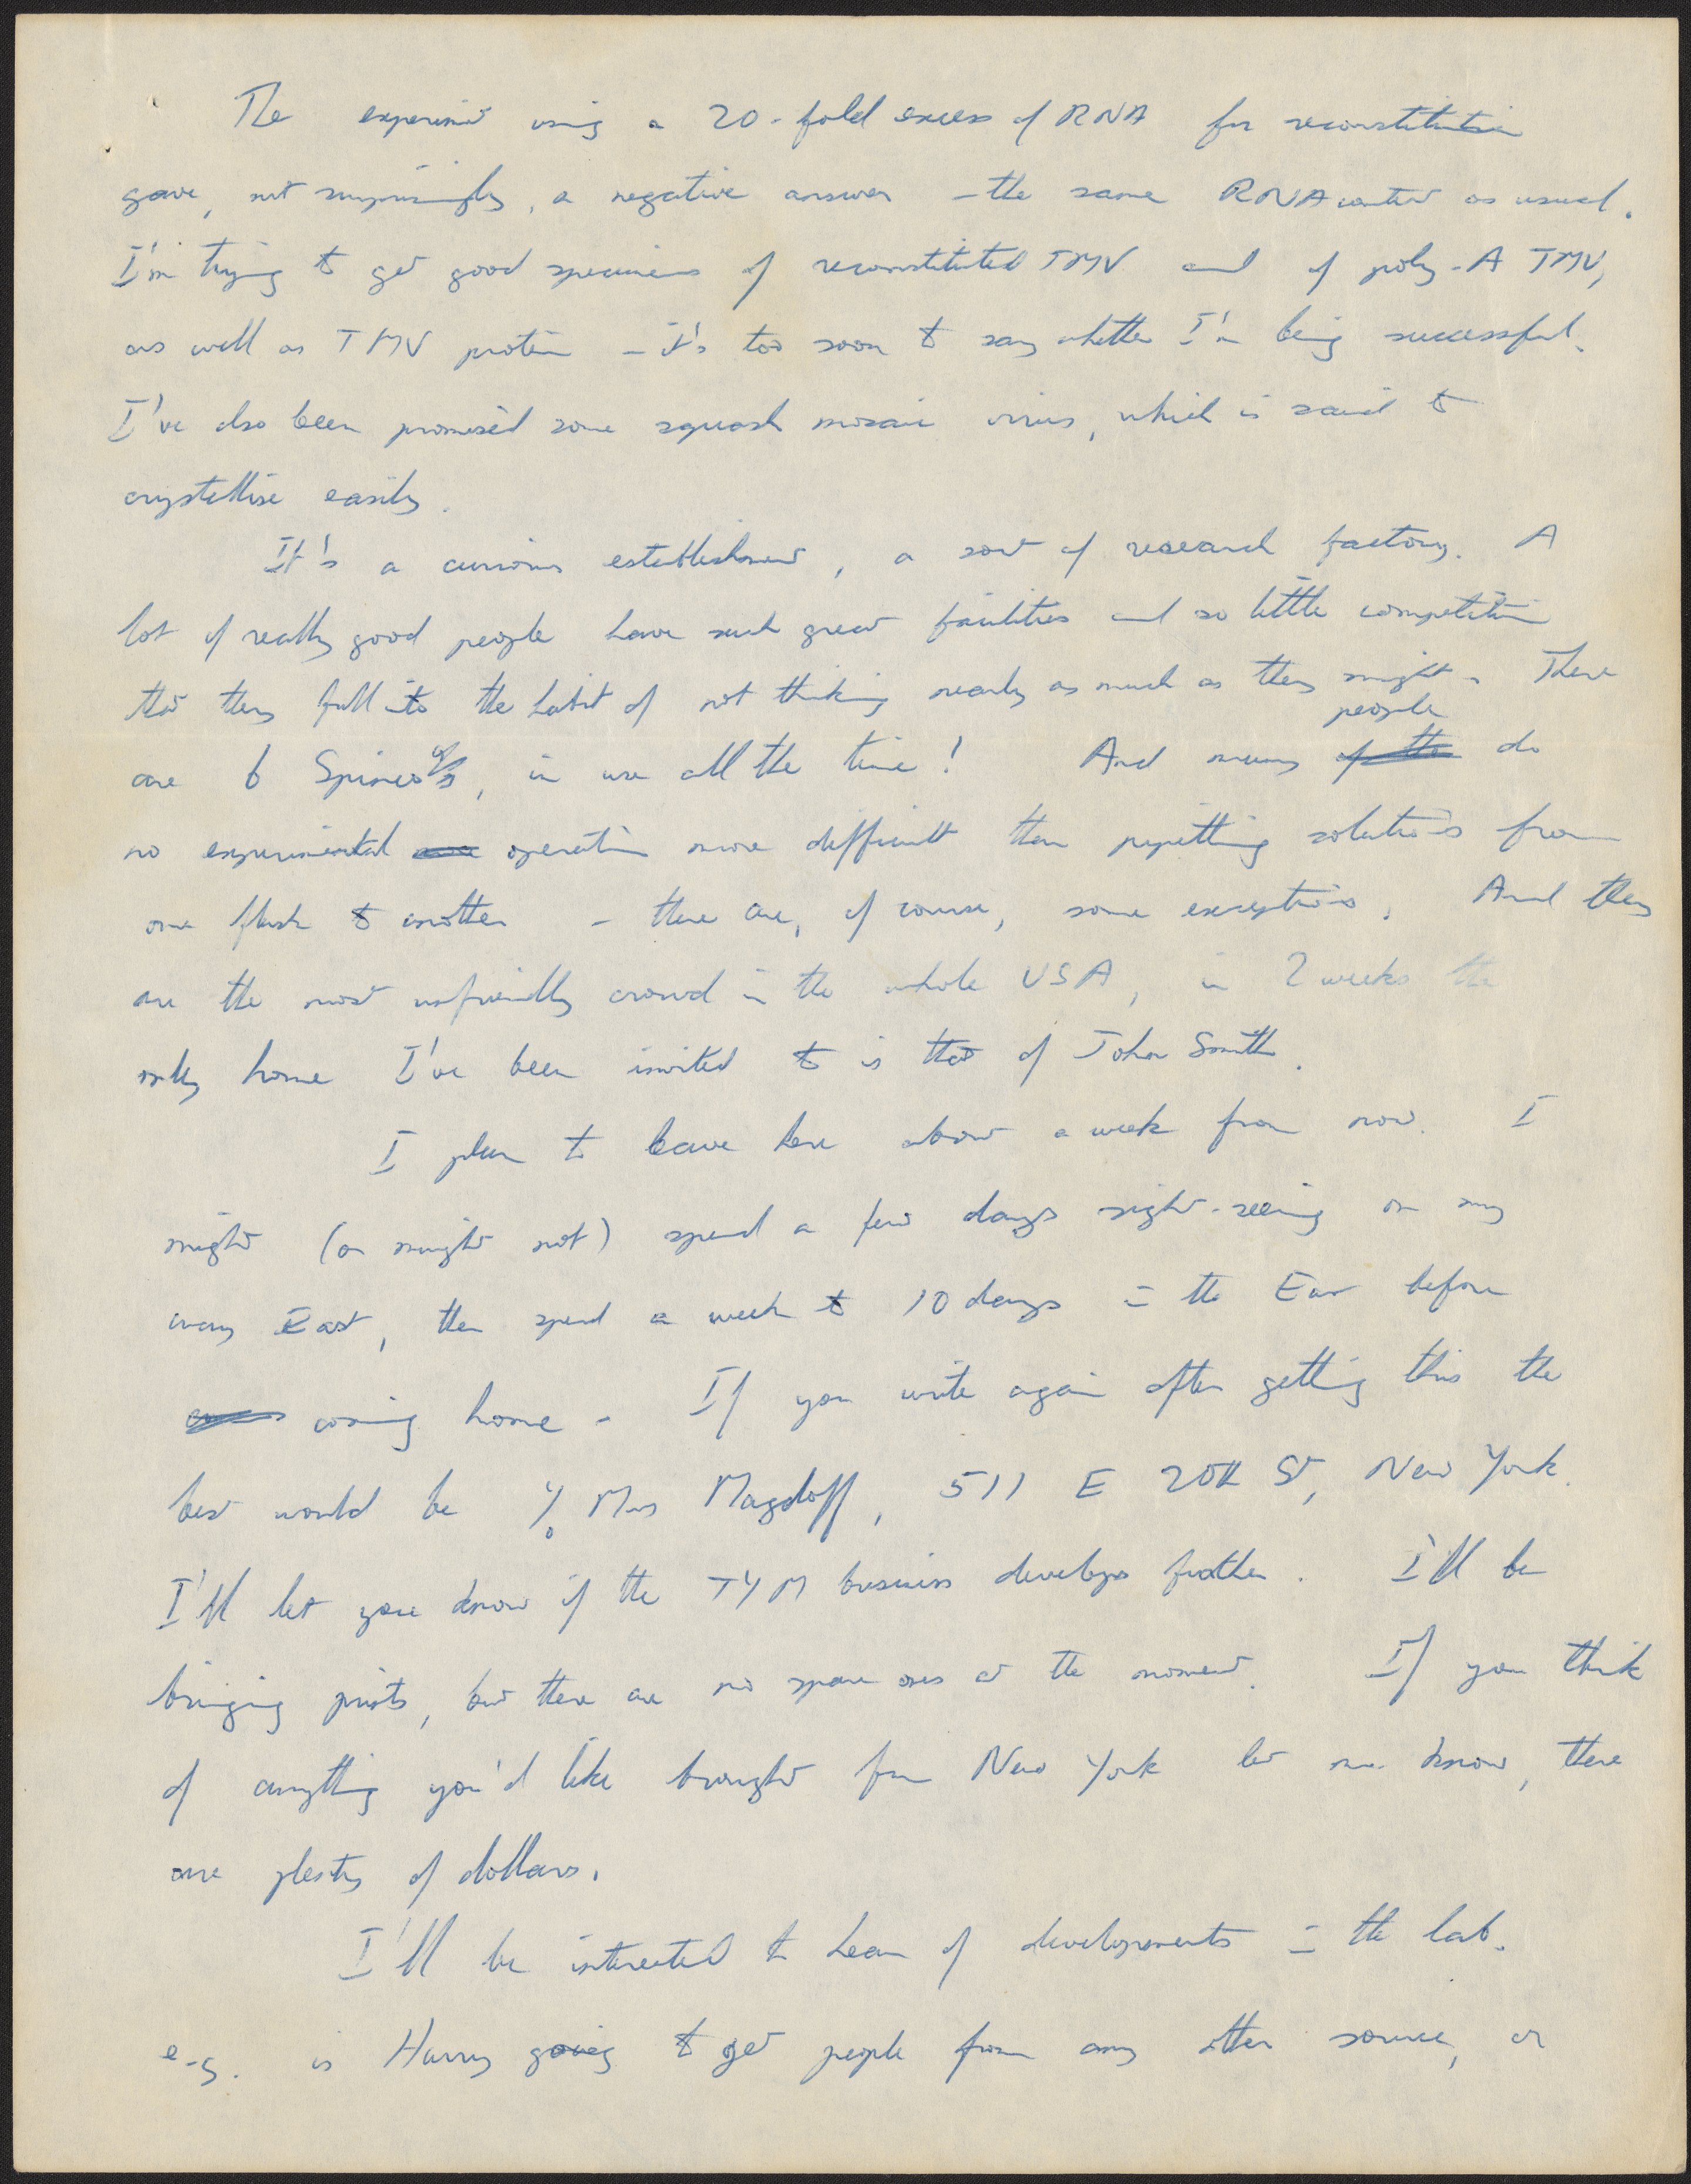 The experiment using a 20-fold excess of RNA for reconstitution
gave, not surprisingly, a negative answer - the same RNA content as usual.
I'm trying to get good specimens of reconstituted TMV and of poly-A TMV,
as well as TMV protein - it's too soon to say whether I'm being successful.
I've also been promised some squash mosaic virus, which is said to
crystallise easily.
It's a curious establishment, a sort of research factory. A
lot of really good people have such great facilities and so little competition
that they fall into the habit of not thinking nearly as much as they might. There
people
are 6 Spinco's, in use all the time! And many of the do
no experimental operation more difficult than pipetting solutions from
one flask to another - there are, of course, some exceptions. And they
are the most unfriendly crowd in the whole USA, in 2 weeks the
only home I've been invited to is that of John Smith.
I plan to leave here about a week from now. I
might (or might not) spend a few days sight-seeing on my
way East, then spend a week to 10 days in the East before
coming home - If you write again after getting this the
best would be c/o Mrs Magdoff, 511 E 20th St, New York.
I'll let you know if the TYM business develops further. I'll be
bringing prints, but there are no spare ones at the moment. If you think
of anything you'd like brought from New York let me know, there
are plenty of dollars.
I'll be interested to hear of developments in the lab.
e.g. is Harry going to get people from any other source, or